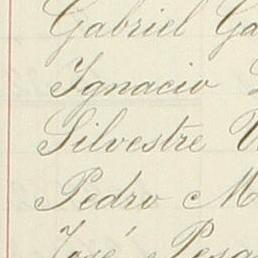 Gabriel Ga
Ignacio
Silvestre
Pedro M
José Pesa